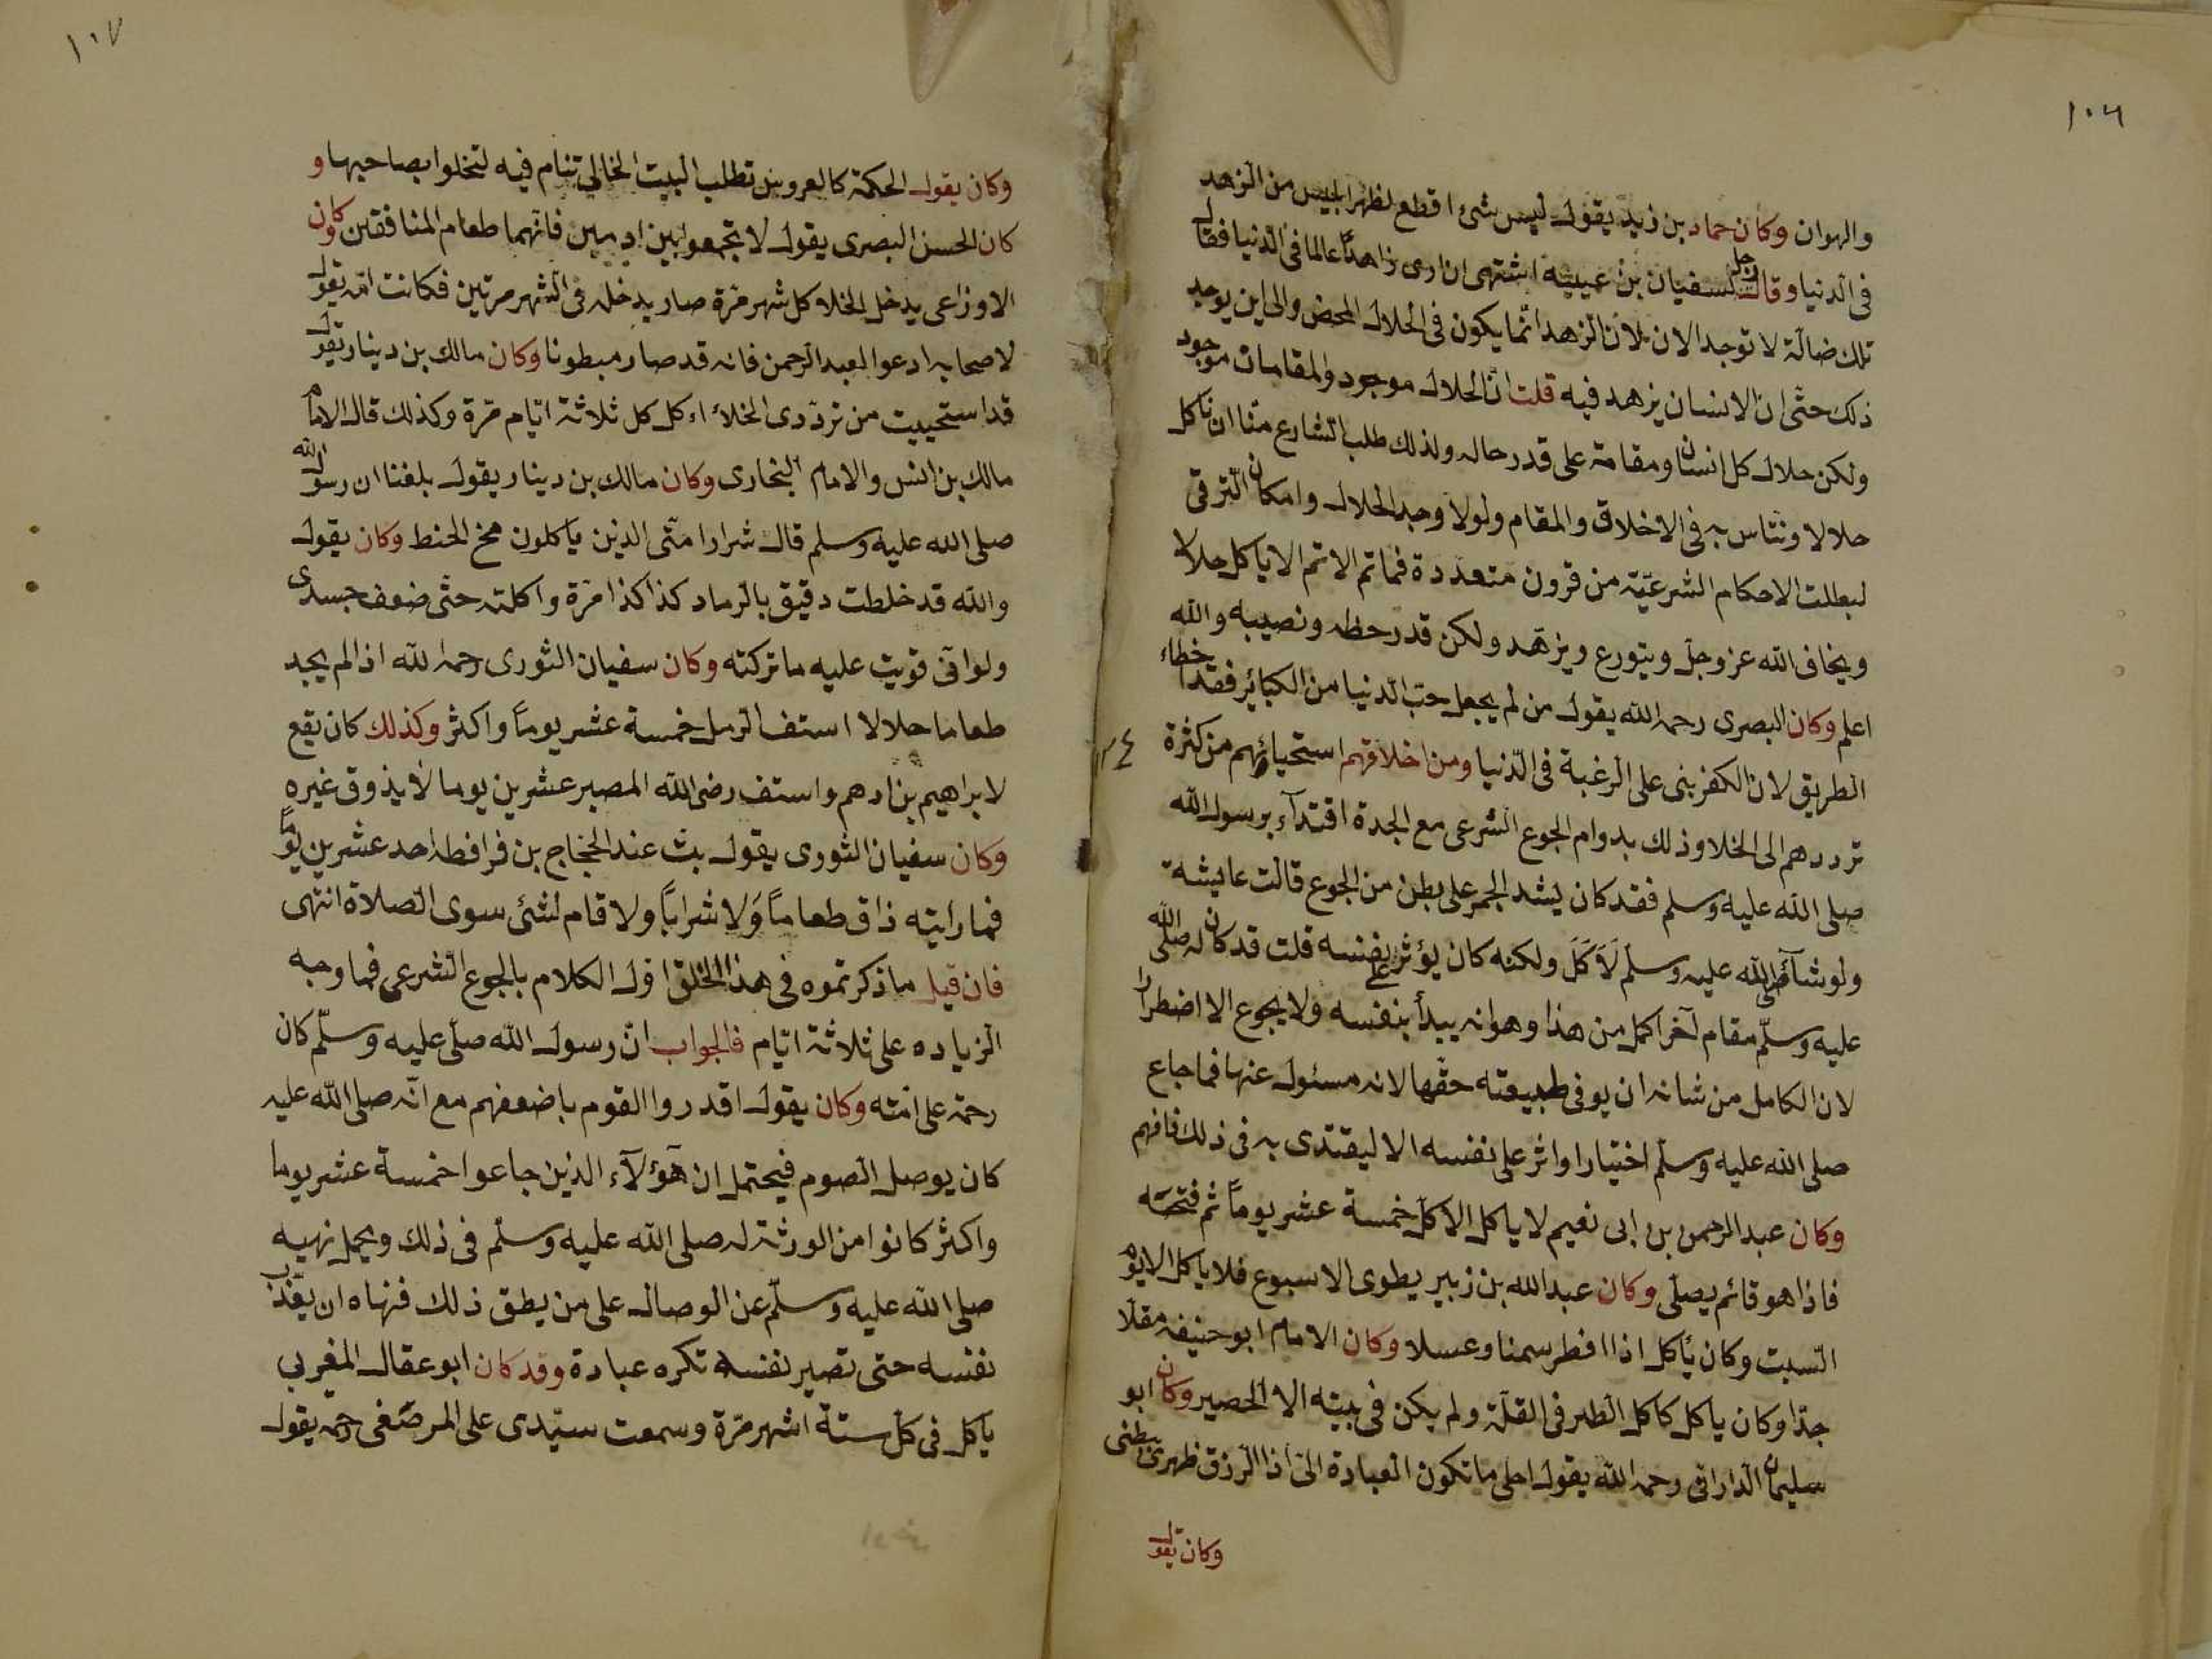 ١٠٦
والهوان وكان حماد بن زيد يقول ليس شئ اقطع لظهر ابليس من الزهد
فى الدنيا وقال رجل لسفيان بن عيينه اشتهى ان ارى زاهدًا عالما فى الدنيا فقال
تلك ضالة لا توجد الان لان الزهد انما يكون فى الحلال المحض والى اين يوجد
ذلك حتى ان الانسان يزهد فيه قلت ان الحلال موجود والمقامات موجود
ولكن حلال كل انسان ومقامة على قدر حاله ولذلك طلب الشارع منّا ان ناكل
حلالا ونتاس به فى الاخلاق والمقام ولولا وجد الحلال وامكان الترقى
لبطلت الاحكام الشرعيّة من قرون متعددة فما تم الا تم الا ياكل حلالا
ويخاف الله عز وجل ويتورع ويزهّد ولكن قدر حظه ونصيبه والله
اعلم وكان البصرى رحمه الله يقول من لم يجعل حبّ الدنيا من الكبائر فقد اخطاء
الطريق لان الكفر بنى على الرغبة فى الدّنيا ومن اخلاقهم استحيائهم من كثرة
ترددهم الى الخلا وذلك بدوام الجوع الشرعى مع الجدة اقتدآء برسول الله
صلى الله عليه وسلم فقد كان يشد الحجر على بطن من الجوع قالت عايشة
ولو شآء صلى الله عليه وسلم لَاَكَلَ ولكنه كان يؤثر على نفسه قلت قد كان له صلى الله
عليه وسلّم مقام آخر اكمل من هذا وهو انه يبدأ بنفسه ولا يجوع الا اضطرارا
لان الكامل من شانه ان يوفى طبيعته حقّها لانه مسئول عنها فما جاع
صلى الله عليه وسلّم اختيارا واثر على نفسه الا ليقتدى به فى ذلك فافهم
وكان عبد الرحمن بن ابى نعيم لا ياكل الا كل خمسة عشر يوماً ثم فتحته
فاذا هو قائم يصلّى وكان عبد الله بن زبير يطوى الاسبوع فلا ياكل الا يوم
السبت وكان يأكل اذا افطر سمنا وعسلا وكان الامام ابو حنيفه مقلا
جدّا وكان ياكل كاكل الطير فى القلّة ولم يكن فى بيته الا الحصير وكان ابو
سليمان الدارانى رحمه الله يقول احلى ما تكون العبادة الىّ اذا الزق ظهرى ببطنى
وكان يقول
١٠٧
وكان يقول الحكمة كالعروس تطلب البيت الخالى تنام فيه لتخلوا بصاحبها و
كان الحسن البصرى يقول لا تجمعوا بين ادمين فانهما طعام المنافقين وكان
الاوزاعى يدخل الخلا كل شهر مرّة صار يدخله فى الشهر مرتين فكانت امّه تقول
لاصحابه ادعوا لعبد الرحمن فانه قد صار مبطونا وكان مالك بن دينار يقول
قد استحييت من تردّدى الخلاء اء كل كل ثلاثة ايّام مرّة وكذلك قال الامام
مالك بن انس والامام البخارى وكان مالك بن دينار يقول بلغنا ان رسول الله
صلى الله عليه وسلم قال شرار امّتى الذين ياكلون مخ الحنط وكان يقول
والله قد خلطت دقيق بالرماد كذا كذا مرّة واكلته حتى ضعف جسدى
ولو انى قويت عليه ما تركته وكان سفيان الثورى رحمه الله اذا لم يجد
طعاما حلالا استف الرمل خمسة عشر يوماً واكثر وكذلك كان يقع
لابراهيم بن ادهم واستف رضى الله المصير عشرين يوما لا يذوق غيره
وكان سفيان الثورى يقول بت عند الحجاج بن فرافطه احد عشرين يومًا
فما رايته ذاق طعاماً وَلا شراباً ولا قام لشئى سوى الصلاة انتهى
فان قيل ما ذكرتموه فى هذا الخلق اول الكلام بالجوع الشرعى فما وجه
الزياده على ثلاثة ايّام فالجواب انّ رسول الله صلّى عليه وسلّم كان
رحمة على امّته وكان يقول اقدروا القوم باضعفهم مع انّه صلى الله عليه
كان يوصل الصوم فيحتمل ان هؤلآء الذين جاعوا خمسة عشر يوما
واكثر كانوا من الورثة له صلى الله عليه وسلّم فى ذلك ويحمل نهيه
صلى الله عليه وسلّم عن الوصال على من يطق ذلك فنهاه ان يعذّب
نفسه حتى تصير نفسه تكره عبادة وقد كان ابو عقال المغربى
ياكل فى كلّ ستة اشهر مرّة وسمعت سيّدى على المرصفى رحمه يقول